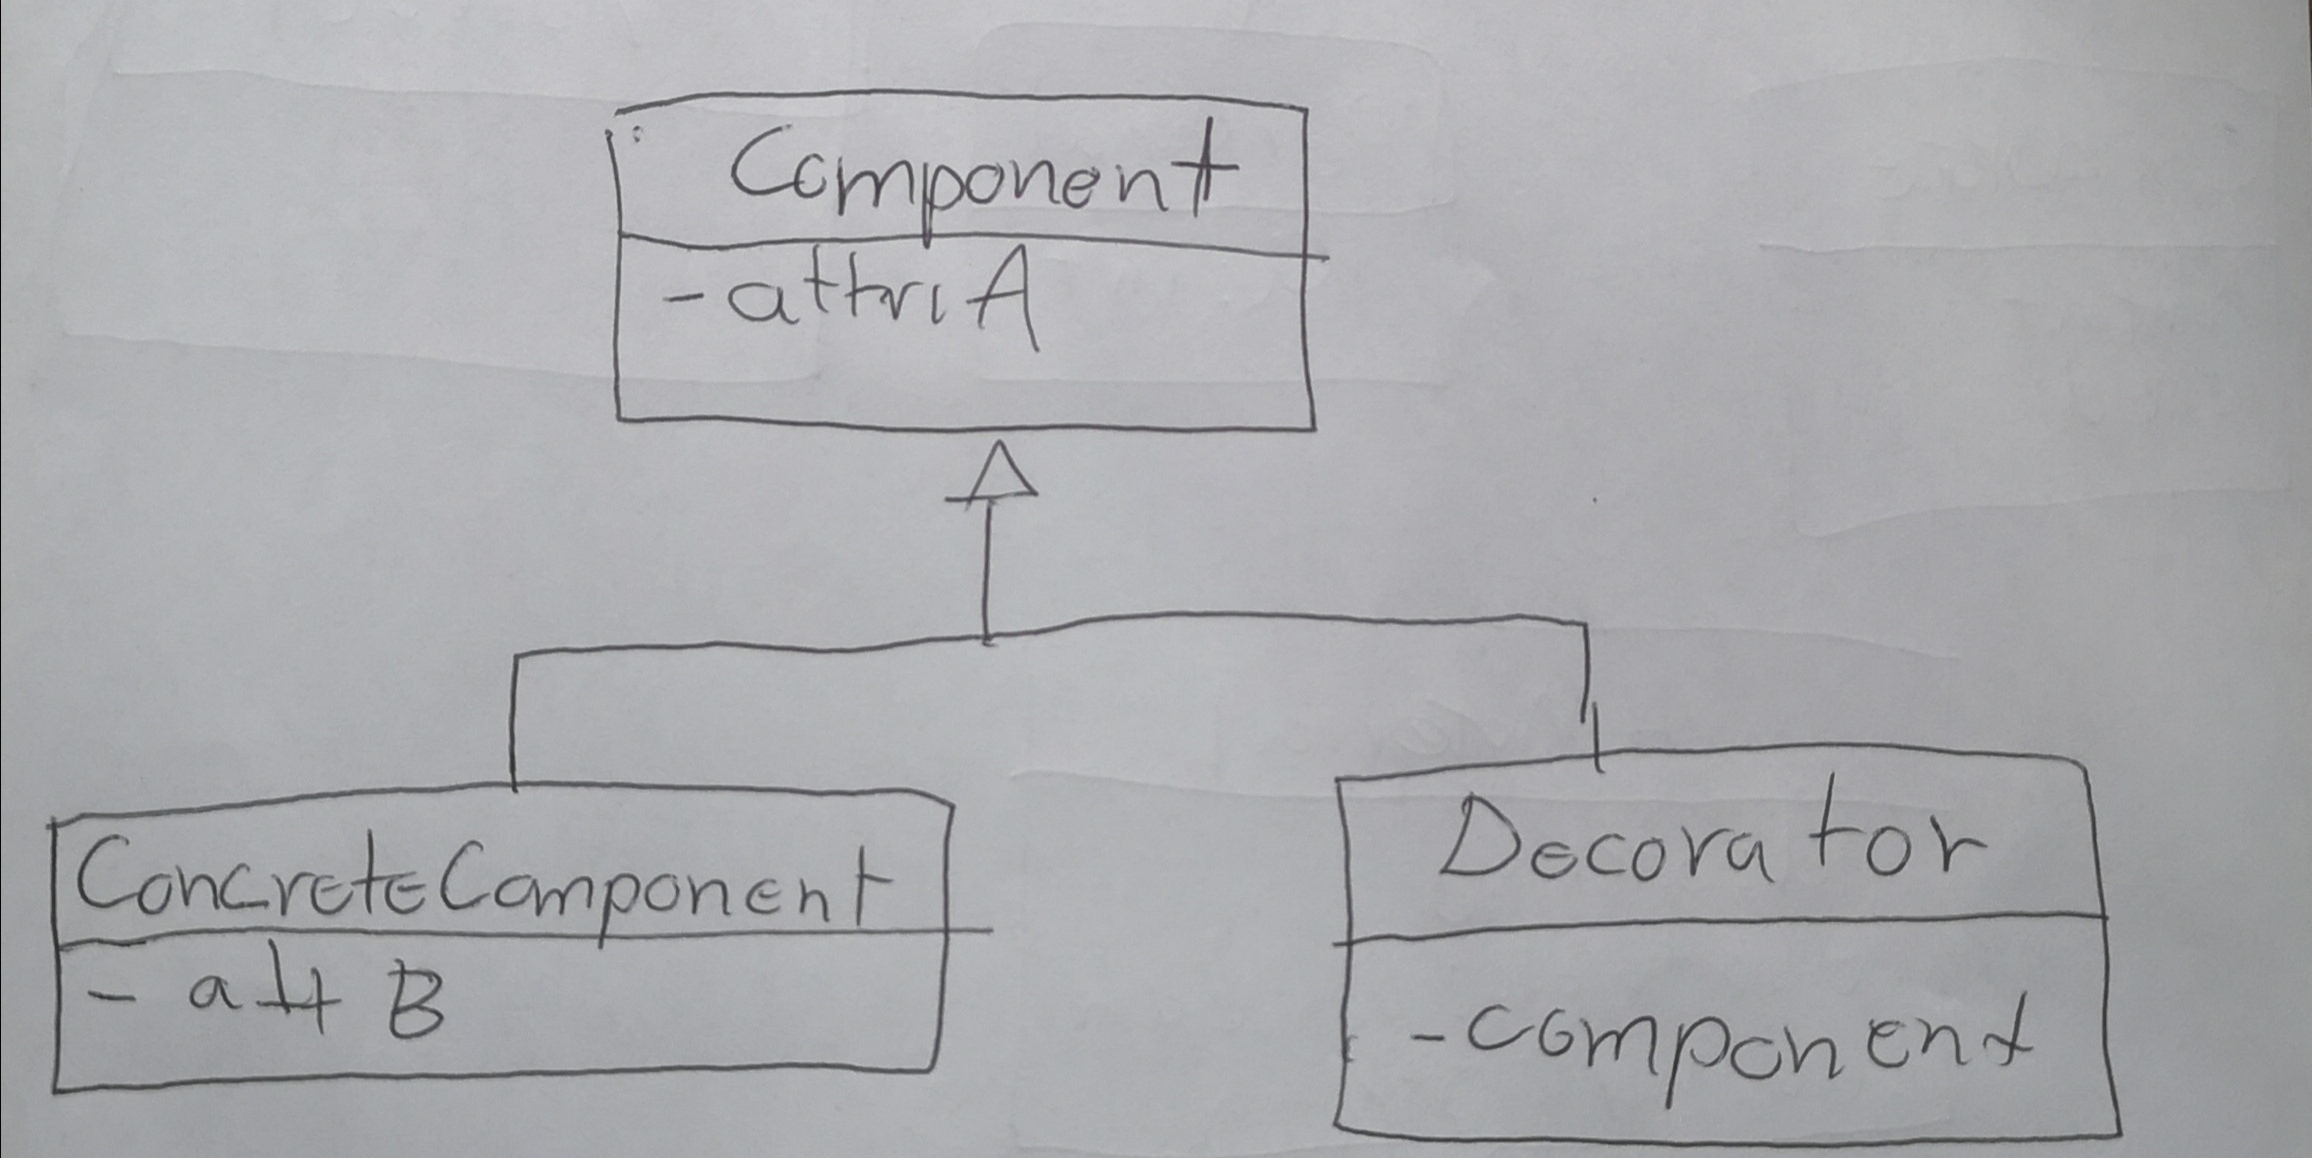 Component
- attriA
ConcreteComponent
- att B
Decorator
- component